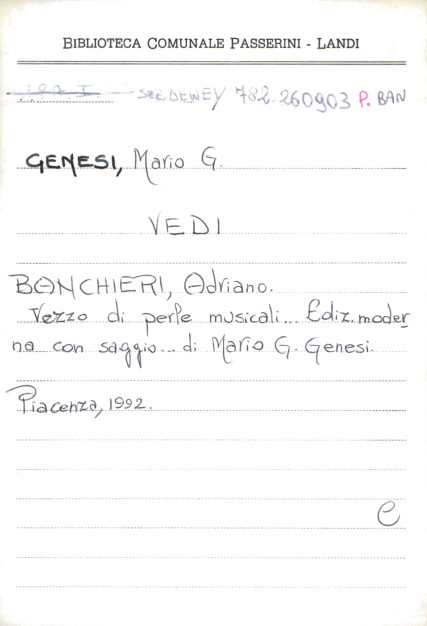 BIBLIOTECA COMUNALE PASSERINI - LANDI
sez. DEWEY 782.260903 P. BAN
GENESI, Mario G.
VEDI
BANCHIERI, Adriano.
Vezzo di perle musicali... Ediz. moder
na con saggio... di Mario G. Genesi.
Piacenza, 1992.
e